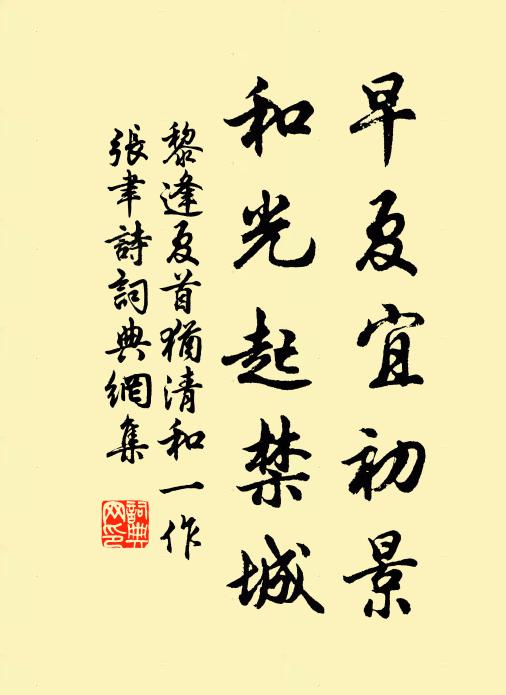 早夏宜初景
和光起禁城
黎逢夏首猶清和一作
張聿詩詞典網集
詞典网印